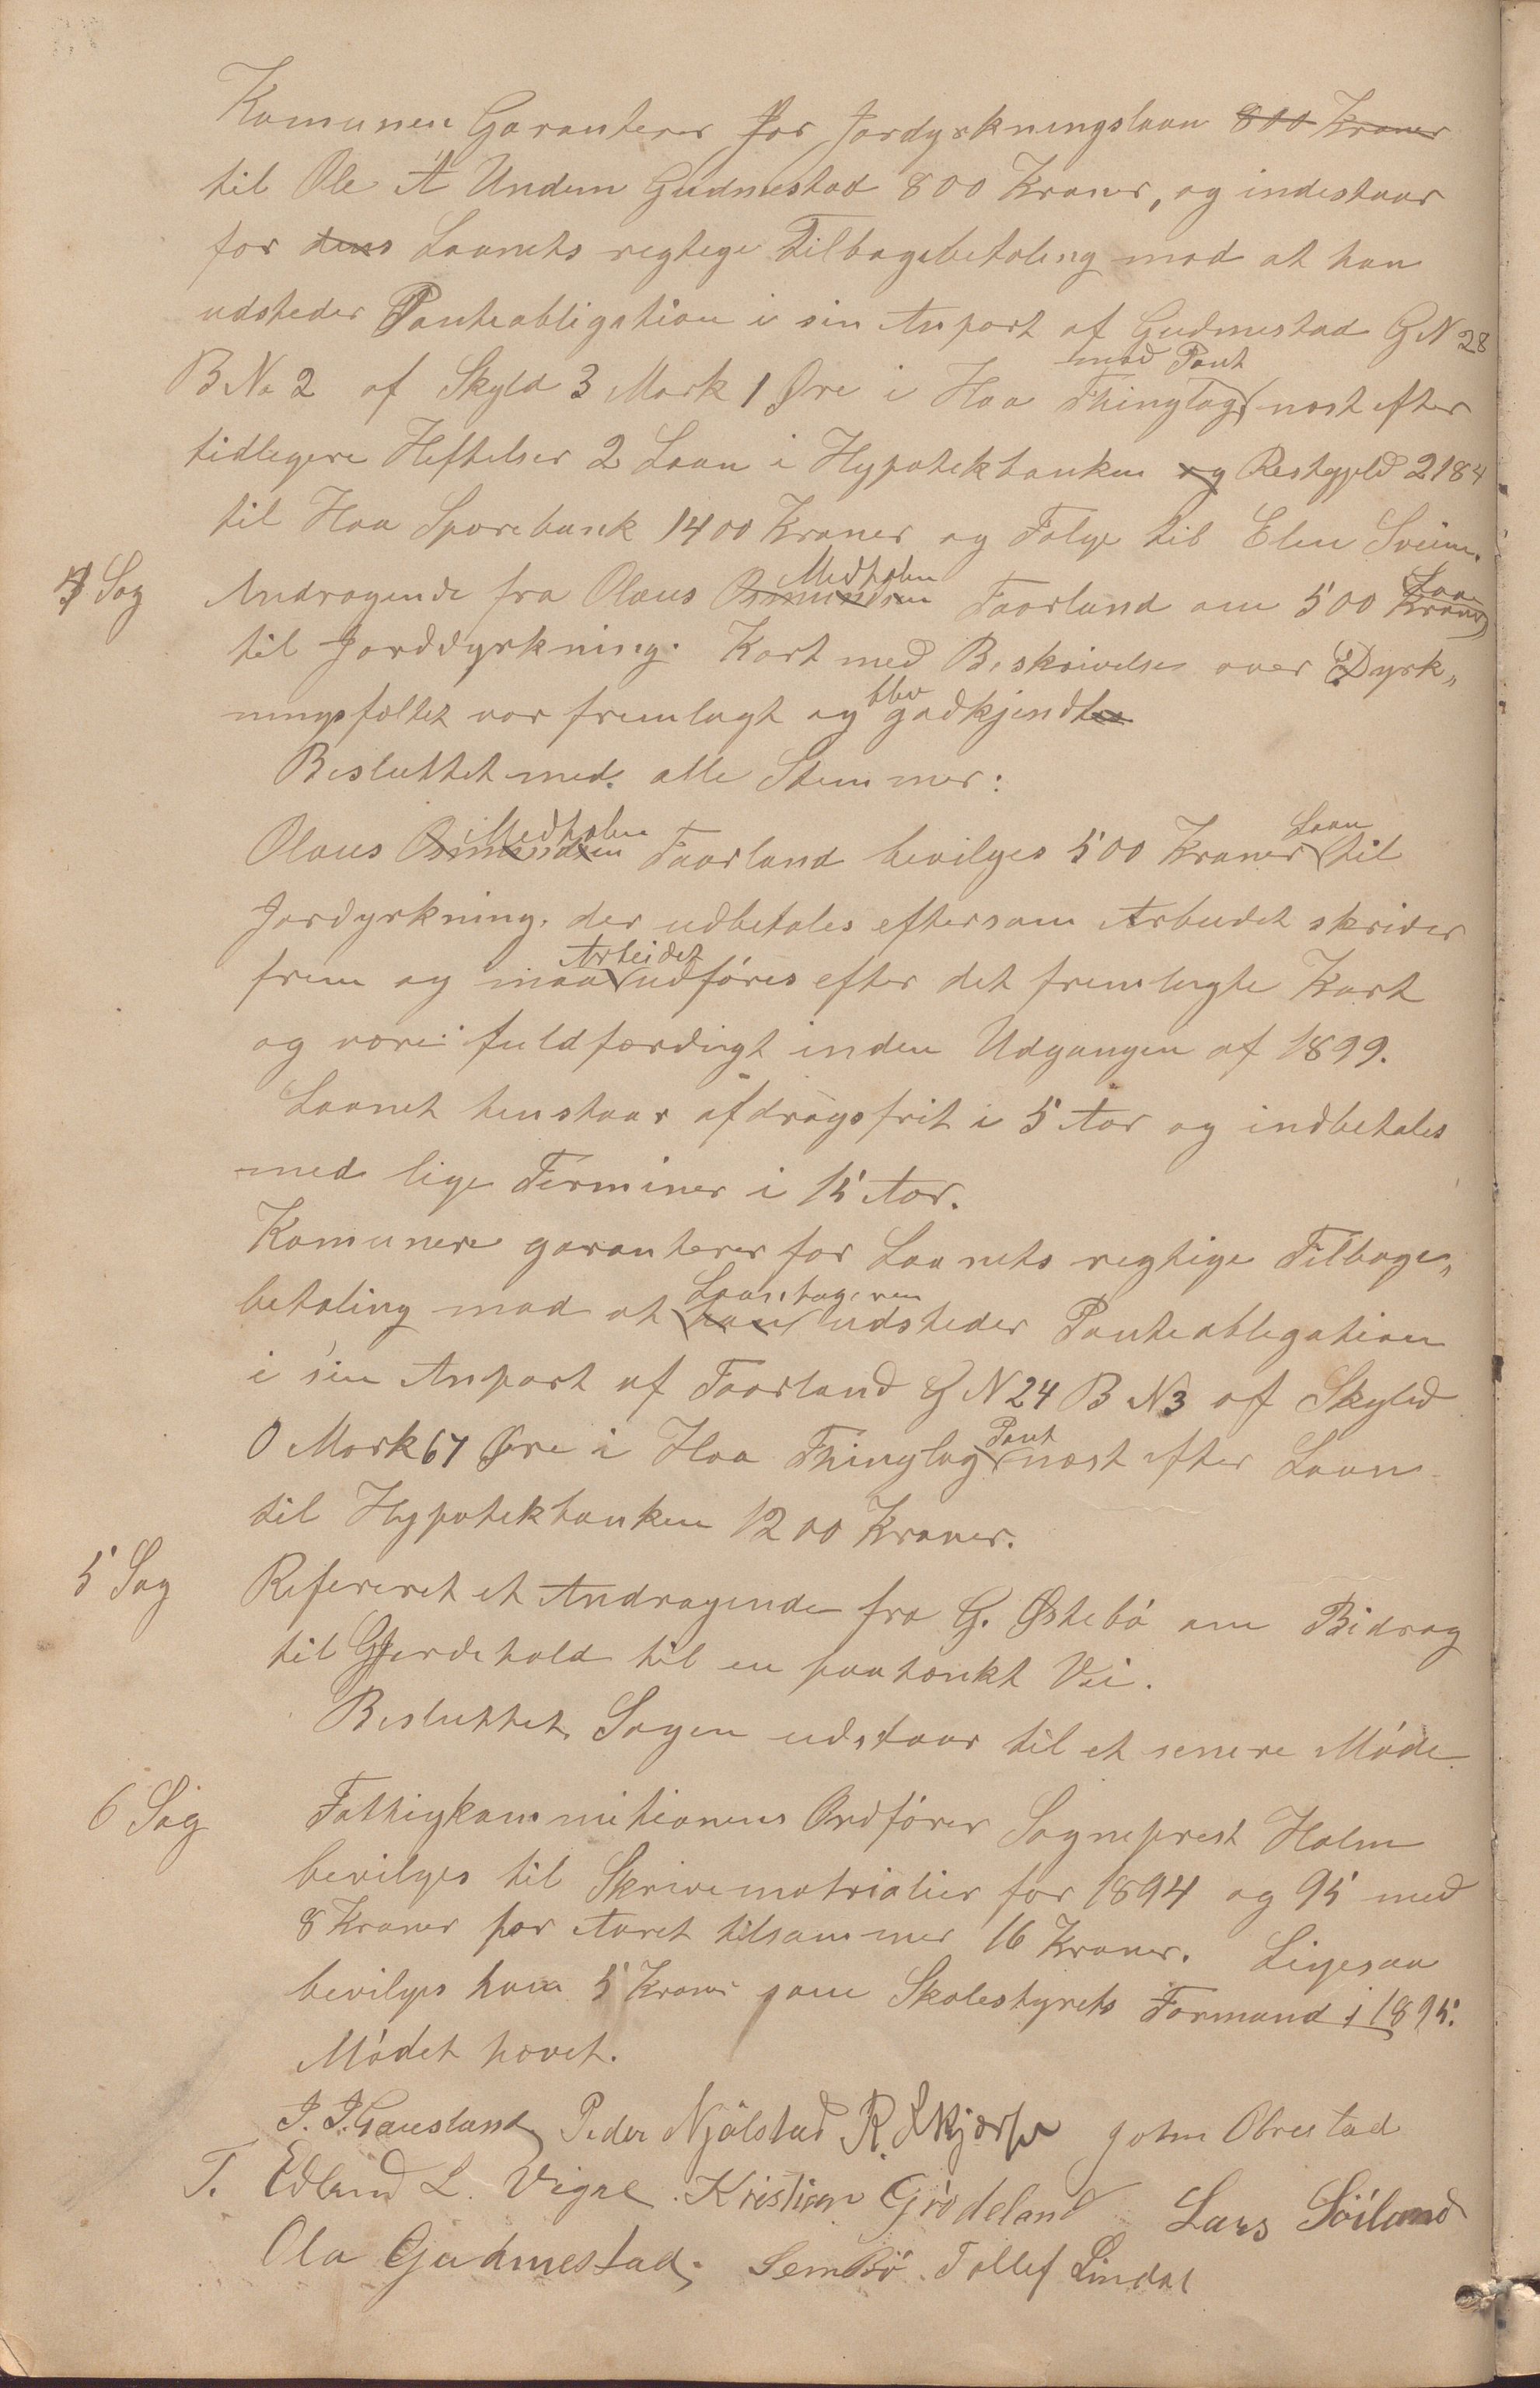 Komunen Garanterer for Jordyrkningslaan 800 Kroner
til Ole A Undem Gudmestad 800 Kroner, og indestaar
for dens Laanets regtige Tilbagebetaling mod at han
udsteder Panteobligation i sin Anpart af Gudmestad G N 28
B No 2 af Skyld 3 Mark 1 Øre i Haa Thinglag mod Pant næst efter
tidligere Heftelser 2 Laan i Hypotekbanken og Restgjeld 2184
til Haa Sparebank 1400 Kroner og Følge til Elen Svein.
4 Sag Andragende fra Olaus Osmundsen Medholen Faarland om 500 Kroner Laan
til Jorddyrkning. Kart med Beskrivelse over Dyrk„
ningsfeltet var fremlagt og blev godkjendt
Besluttet med alle Stemmer:
Olaus Osmundsen Medholen Faarland bevilges 500 Kroner Laan til
Jordyrkning, der udbetales eftersom Arbeidet skrider
frem og maa Arbeidet udføres efter det fremlagte Kart
og være fuldfærdigt inden Udgangen af 1899.
Laanet henstaar afdragsfrit i 5 Aar og indbetales
med lige Terminer i 15 Aar.
Komunen garanterer for Laanets regtige Tilbage„
betaling mod at han Laantageren udsteder Panteobligation
i sin Anpart af Faarland G N 24 B N 3 af Skyld
0 Mark 67 Øre i Haa Thinglag Pant næst efter Laan
til Hypotekbanken 1200 Kroner.
5 Sag Refereret et Andragende fra G. Østebø om Bidrag
til Gjerdehold til en paatænkt Vei.
Besluttet Sagen udstaar til et senere Møde
6 Sag Fattigkommitionens Ordfører Sogneprest Holm
bevilges til Skrivematrialier for 1894 og 95 med
8 Kroner for Aaret tilsammer 16 Kroner. Ligesaa
bevilges ham 5 Kroner som Skolestyrets Formand i 1895.
Mødet hævet.
J. J. Gausland Peder Njölstad R. Skjærpe John Obrestad
T. Edland L. Vigre. Kristian Grödeland Lars Söiland
Ola Gudmestad. Sem Bö. Tollef Lindal